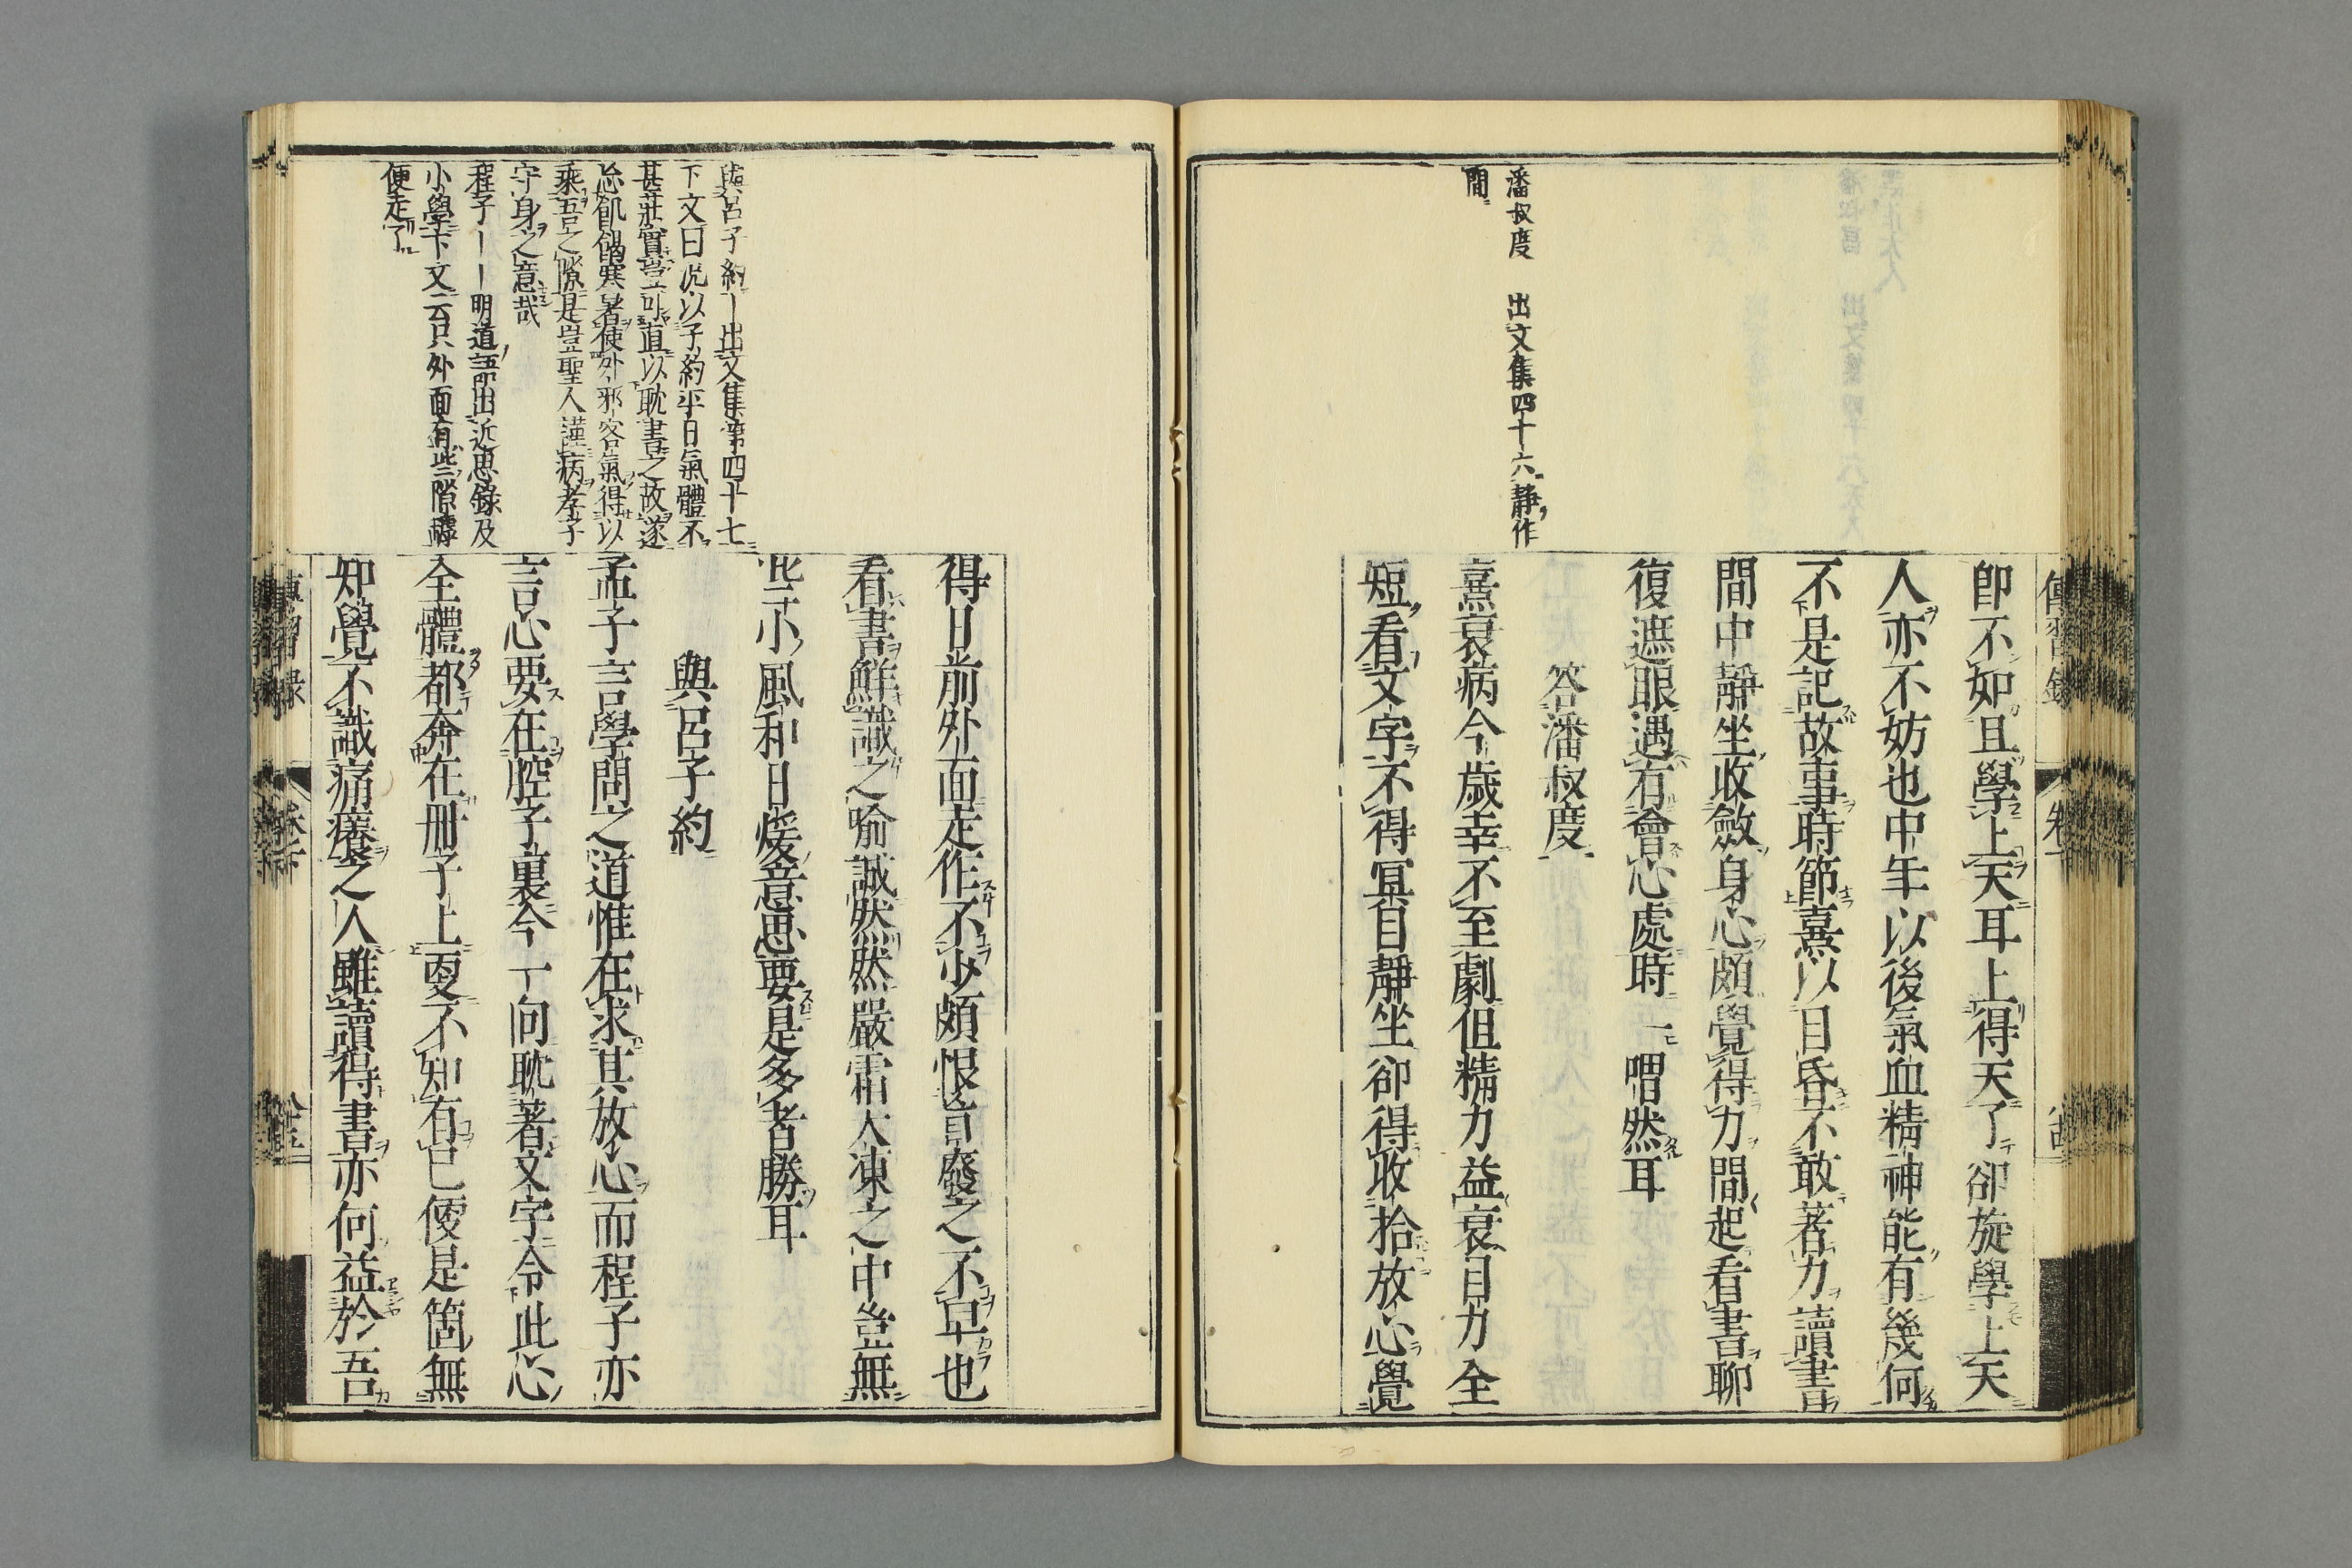 潘叔度　出文集四十六靜作
間
即不如且學上天耳上得天了卻旋學上天
人亦不妨也中年以後氣血精神能有幾何
不是記故事時節熹以目昏不敢著力讀書
間中靜坐收斂身心頗覺得力間起看書聊
復遮眼遇有會心處時一喟然耳
答潘叔度
熹衰病今歲幸不至劇但精力益衰目力全
短看文字不得冥目靜坐卻得收拾放心覺
與呂子約丨出文集第四十七
下文曰况以子約平日氣體不
甚壯實豈可直以耽書之故遂
忘飢餲寒暑使外邪客氣得以
乘吾之隙是豈聖人謹病孝子
守身之意哉
程子丨丨明道語出近思錄及
小學下文云只外面有些隙罅
便走了
得日前外面走作不少頗恨盲廢之不早也
看書鮮識之喻誠然然嚴霜大凍之中豈無
些小風和日煖意思要是多者勝耳
與呂子約
孟子言學問之道惟在求其放心而程子亦
言心要在腔子裏今一向耽著文字令此心
全體都奔在冊子上更不知有已便是箇無
知覺不識痛癢之人雖讀得書亦何益於吾
傳習錄　卷下